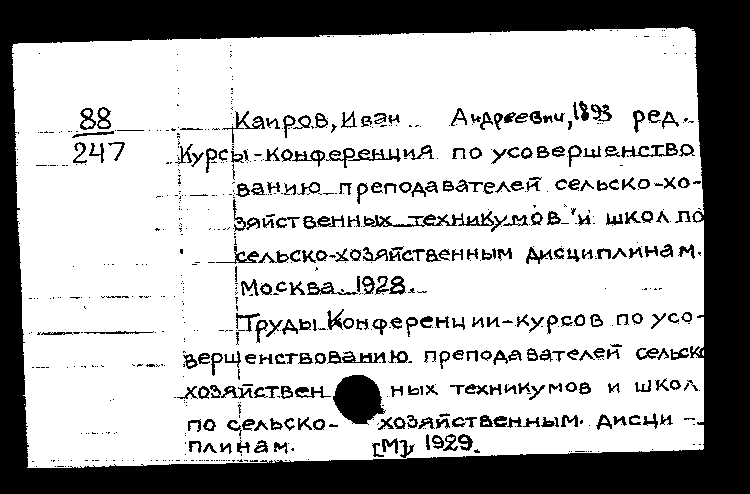 88 Каиров, Иван Андреевич, 1893 ред.
247 Курсы-конференция по усовершенство
ванию преподавателей сельско-хо-
зяйственных техникумов и школ по
сельско-хозяйственным дисциплинам.
Москва. 1928.
Труды Конференции-курсов по усо-
вершенствованию преподавателей сельско
хозяйствен ных техникумов и школ
по сельско- хозяйственным. дисци-
плинам. [М], 1929.